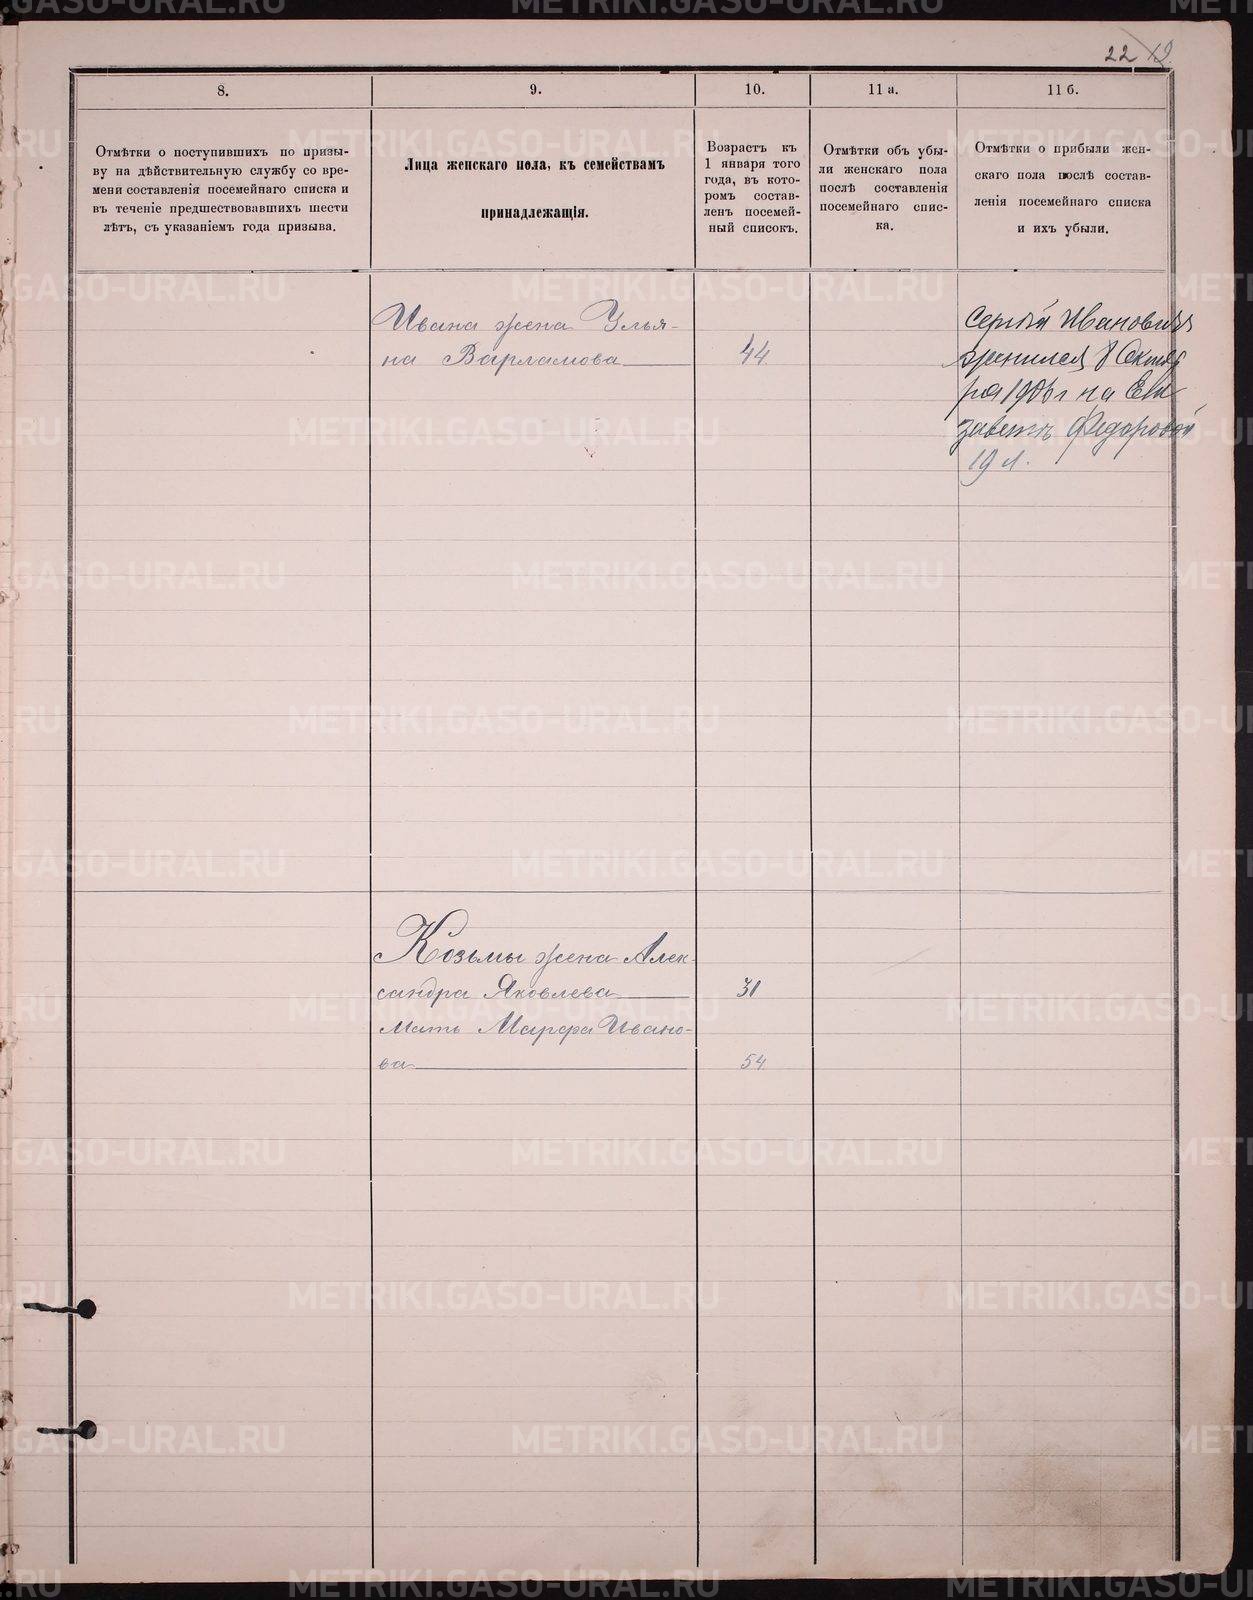 22 19.
8.
9.
10.
11 а.
11 б.
Отмѣтки о поступившихъ по призы-
ву на дѣйствительную службу со вре-
мени составленія посемейнаго списка и
въ теченіе предшествовавшихъ шести
лѣтъ, съ указаніемъ года призыва.
Лица женскаго пола, къ семействамъ
принадлежащія.
Возрастъ къ
1 января того
года, въ кото-
ромъ состав-
ленъ посемей-
ный списокъ.
Отмѣтки объ убы-
ли женскаго пола
послѣ составленія
посемейнаго спис-
ка.
Отмѣтки о прибыли жен-
скаго пола послѣ состав-
ленія посемейнаго списка
и ихъ убыли.
Ивана жена Улья-
на Варламова 44
Сергѣй Ивановичъ
женился 8 Октяб
ря 1906 г на Ели
заветѣ Федоровой
19 л.
Козьмы жена Алек-
сандра Яковлева 31
Мать Марфа Ивано-
ва 54
METRIKI.GASO-URAL.RU